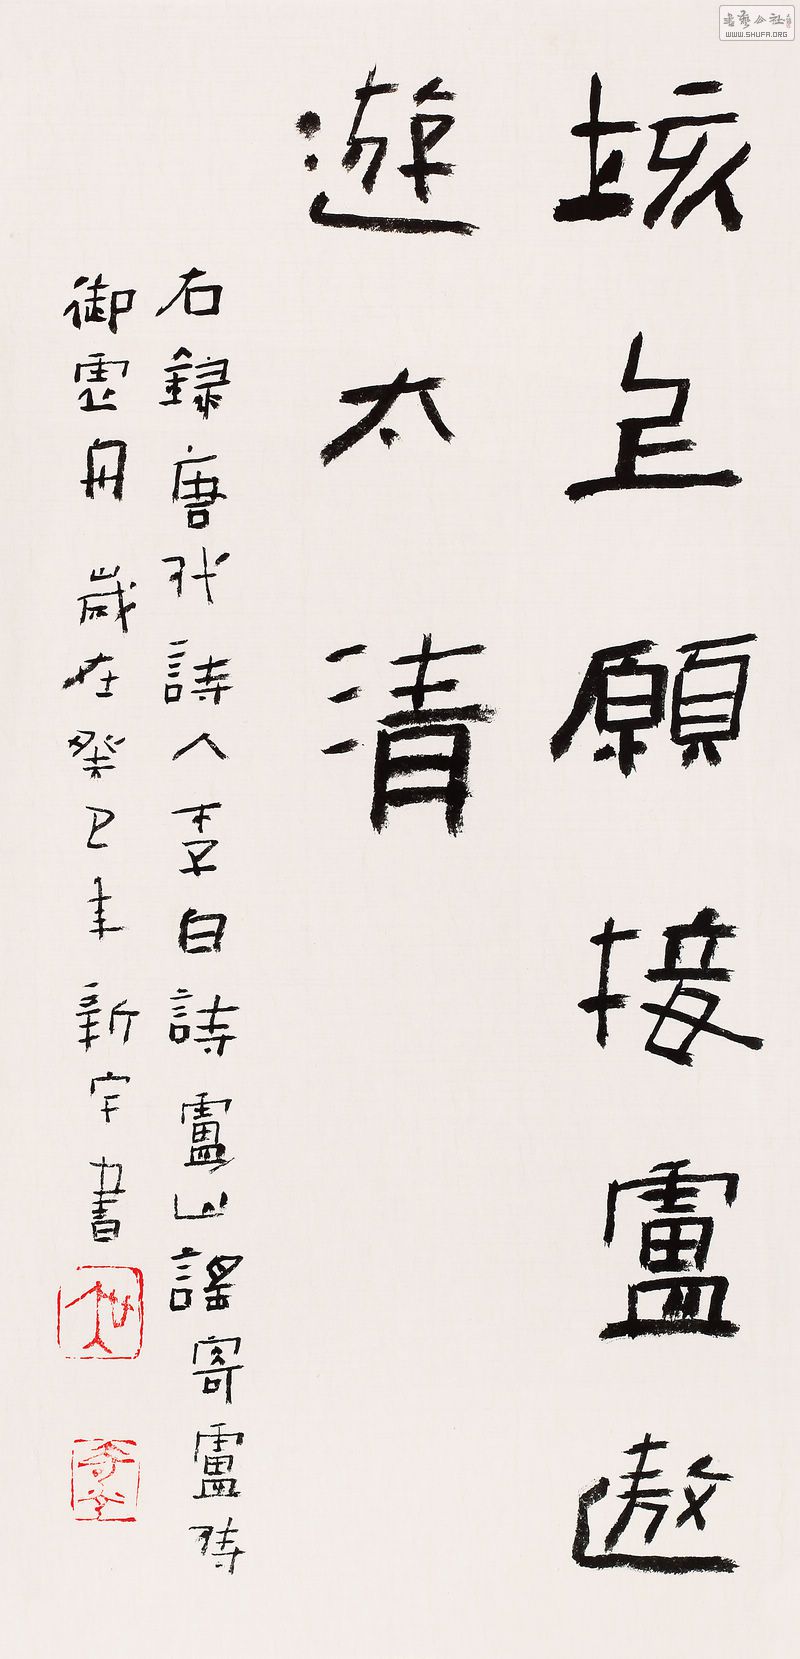 垓上願接盧遨
遊太清
右録唐代詩人李白詩盧山謠寄盧侍
御虛舟 歲在癸巳年新宇書
書藝公社
WWW.SHUFA.ORG